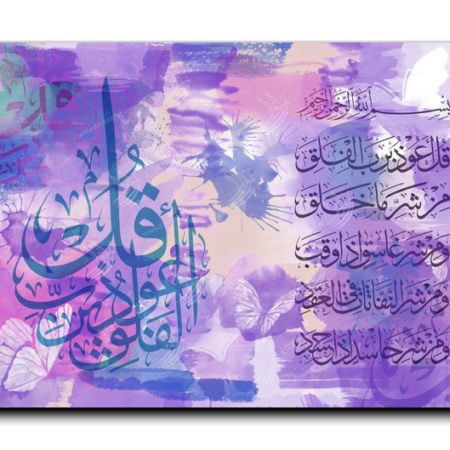 بسم الله الرحمن الرحيم
قل أعوذ برب الفلق
من شر ما خلق
ومن شر غاسق إذا وقب
ومن شر النفاثات في العقد
ومن شر حاسد إذا حسد
قل أعوذ برب الفلق